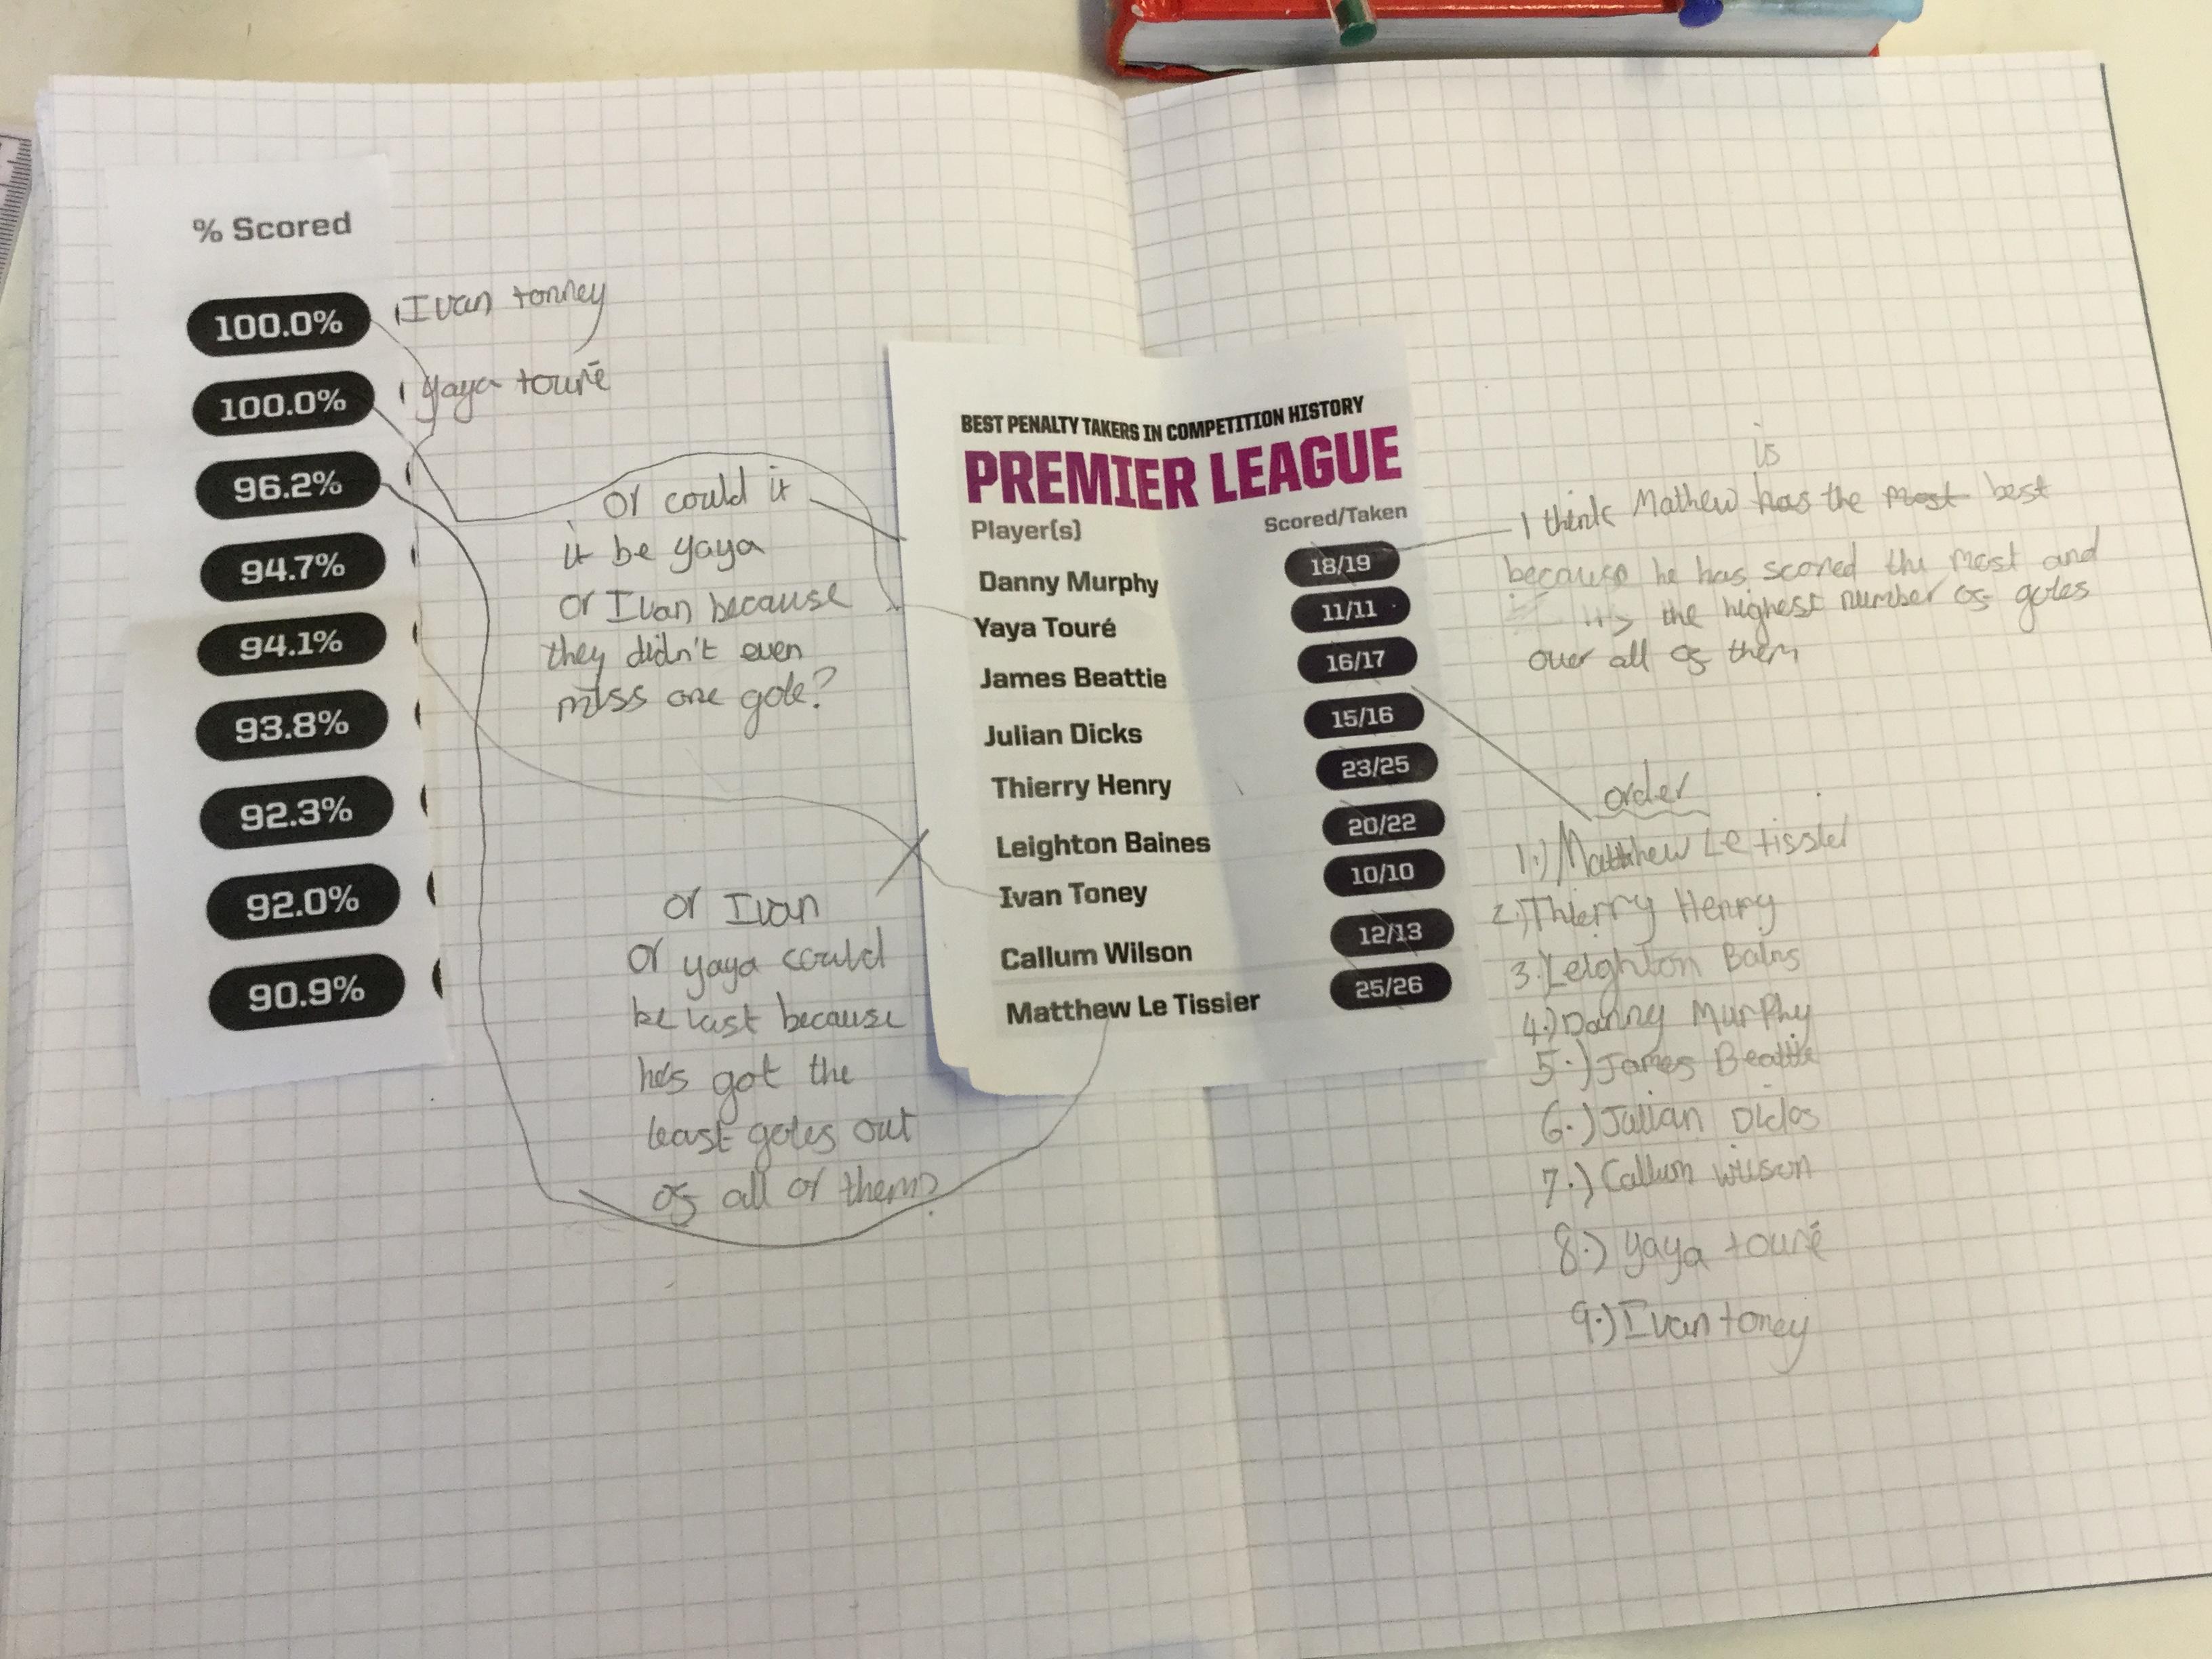 % Scored
100.0%
100.0%
96.2%
94.7%
94.1%
93.8%
92.3%
92.0%
90.9%
Ivan tonney
yaya touré
or could it
it be yaya
or Ivan because
they didn't even
miss one gole?
or Ivan
or yaya could
be last because
he's got the
least goles out
of all of them?
BEST PENALTY TAKERS IN COMPETITION HISTORY
PREMIER LEAGUE
Player(s) Scored/Taken
Danny Murphy 18/19
Yaya Touré 11/11
James Beattie 16/17
Julian Dicks 15/16
Thierry Henry 23/25
Leighton Baines 20/22
Ivan Toney 10/10
Callum Wilson 12/13
Matthew Le Tissier 25/26
is
I think Mathew has the most best
because he has scored the most and
the highest number of goles
over all of them
order
1.) Matthew Le tissier
2.) Thierry Henry
3.) Leighton Balns
4.) Danny Murphy
5.) James Beattie
6.) Julian
7.) Callum wilson
8.) yaya touré
9.) Ivan toney